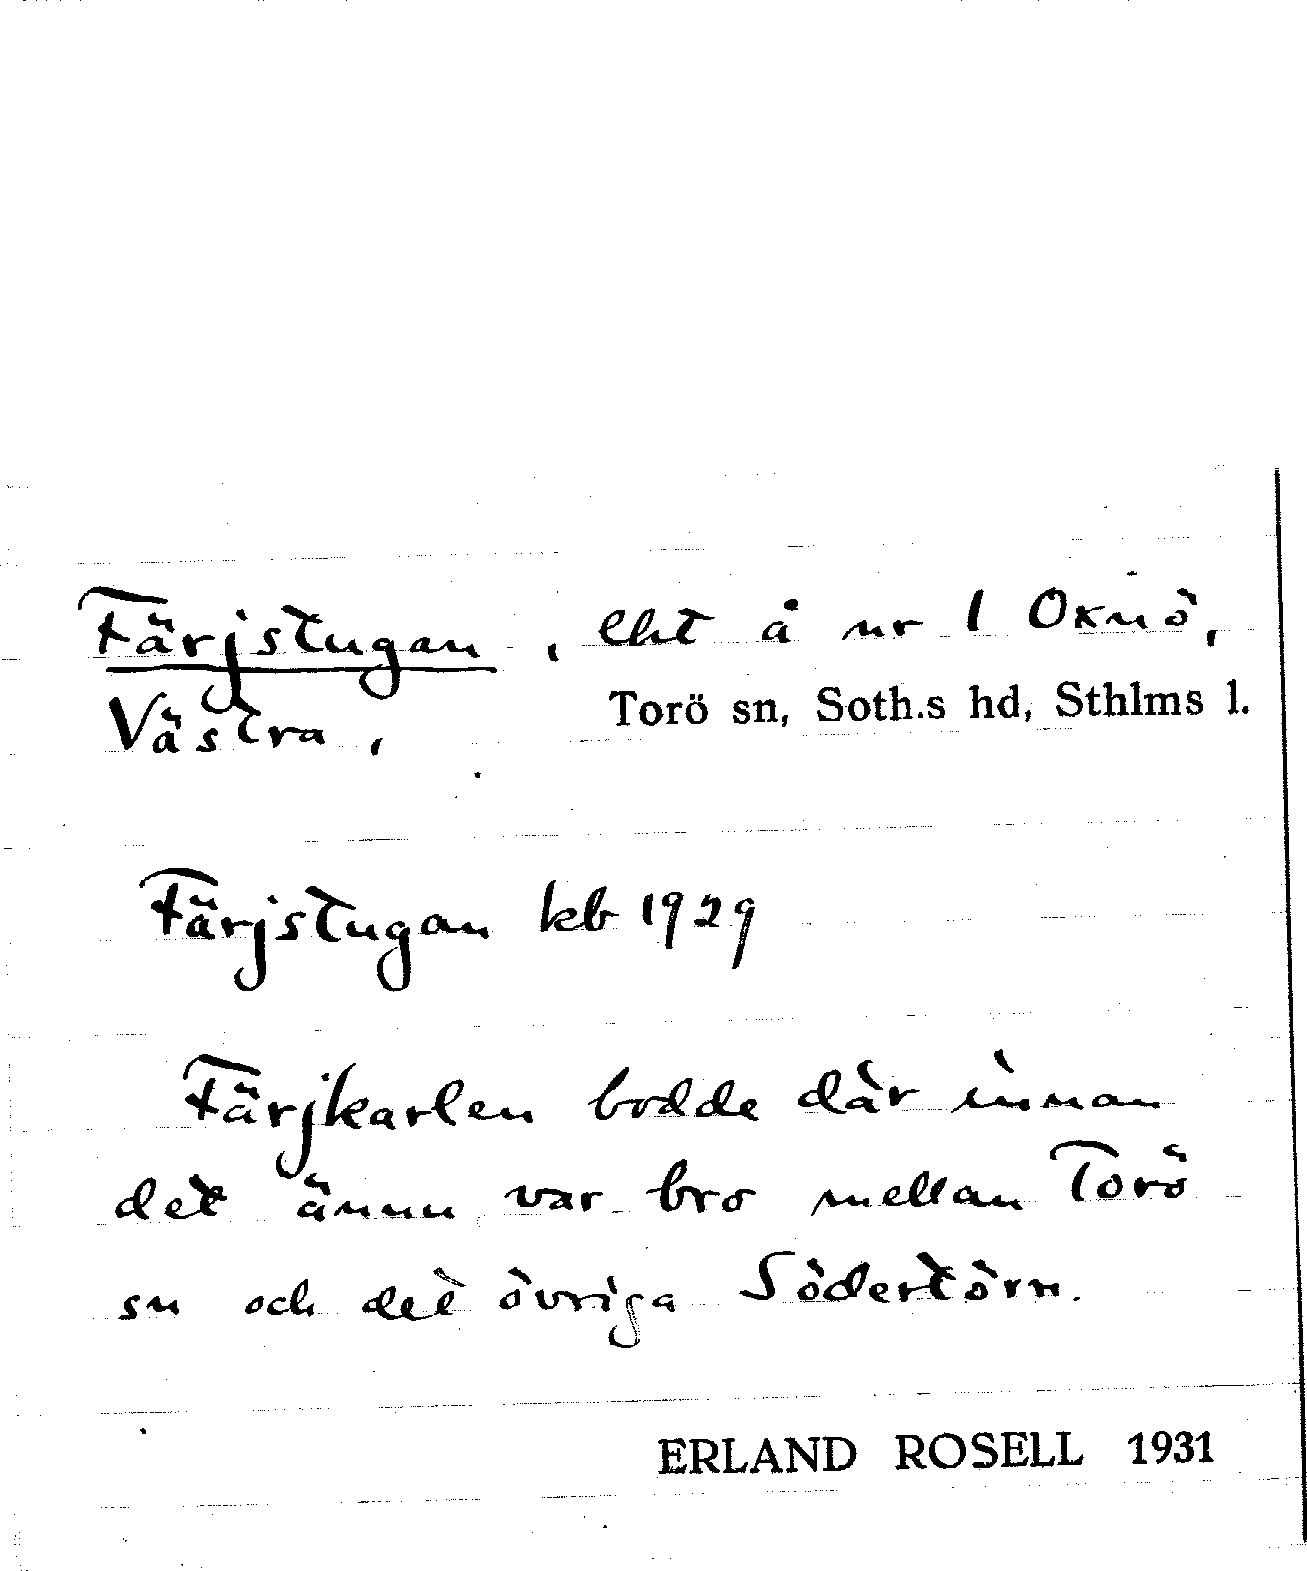 Färjstugan, lht å nr 1 Oxnö,
Västra, Torö sn, Soth.s hd, Sthlms l.
Färjstugan kb 1929
Färjkarlen bodde där innan
det ännu var bro mellan Torö
sn och det övriga Södertörn.
ERLAND ROSELL 1931